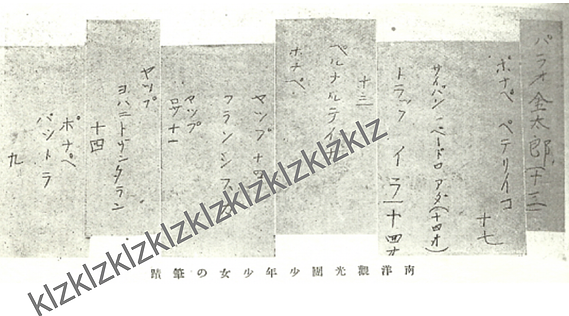 パラオ 金太郎(十二)
ポナペ ペテリイコ
十七
サイパン ペードロ アダ(十四才)
トラック イラ(十四才
十三
ペルナルテイタ
ポナペ
ヤップ 十四
フランシブカ
ヤップ
ロサ十一
ヤップ
ヨハニトリンタラン
十四
ポナペ
パットラ
九
南洋觀光團少年少女の筆蹟
klzklzklzklzklzklzklzklzklzklz